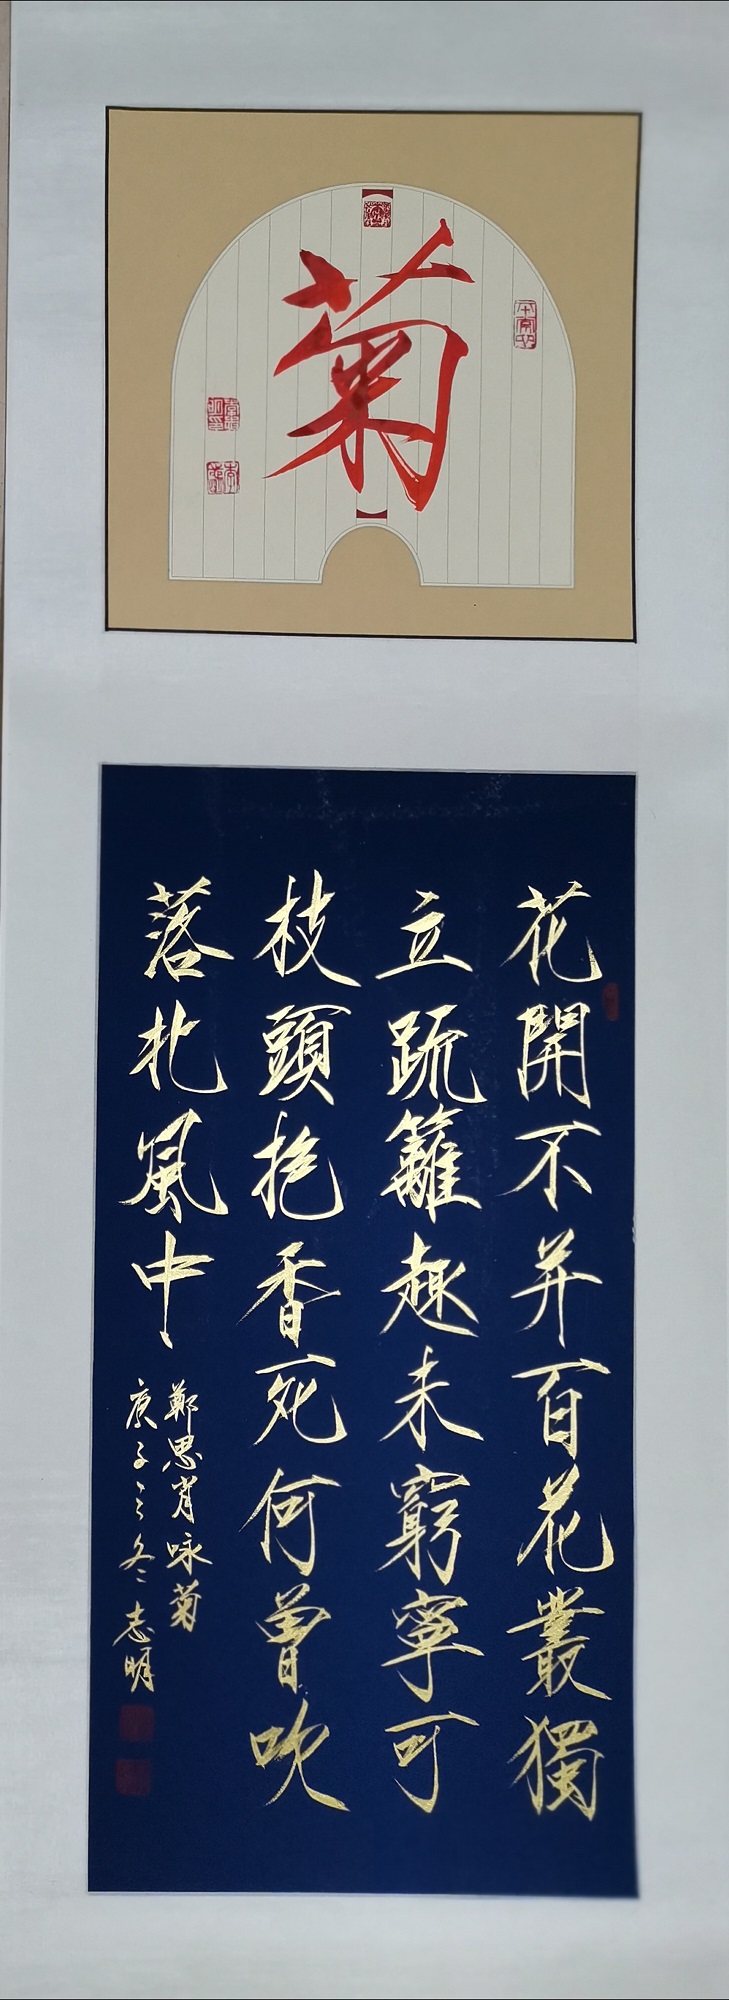 菊
花開不并百花叢獨
立疏籬趣未窮寧可
枝頭抱香死何曾吹
落北風中
鄭思肖咏菊
庚子之冬志明